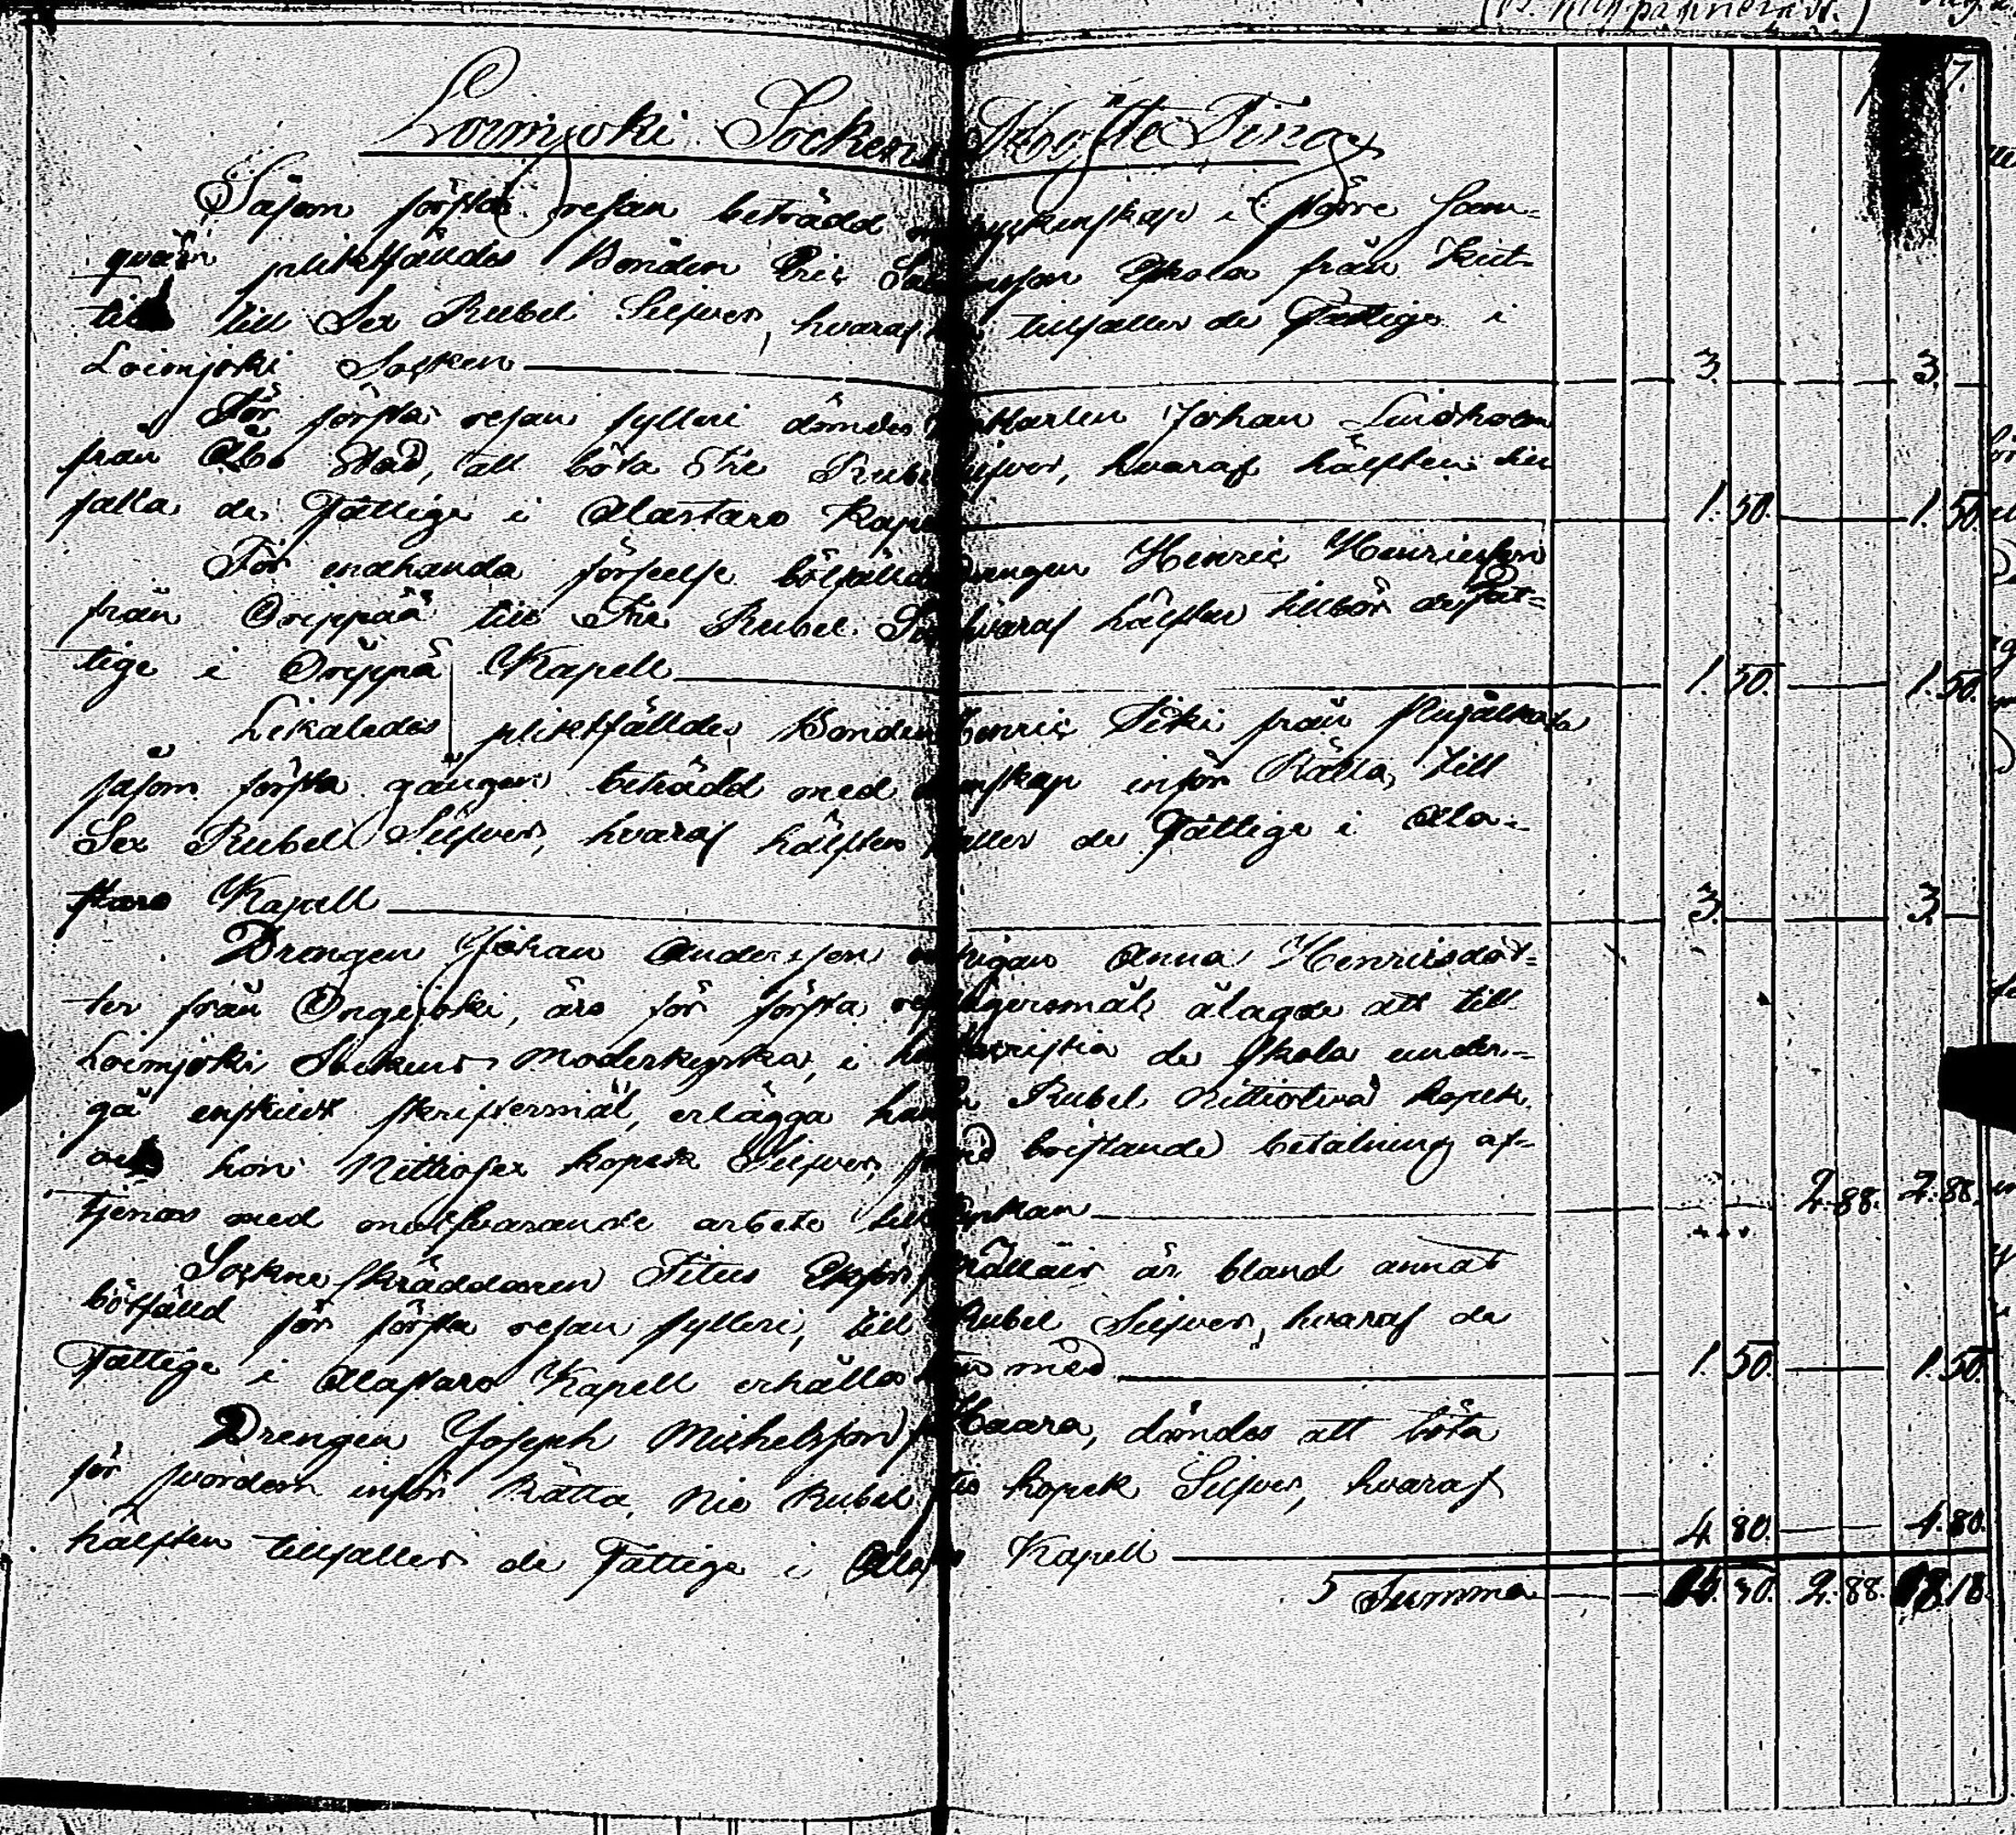 Loimjoki Socken Höste Ting
Såsom första resan beträdd dryckenskap i större sam-
qväm pliktfälldes Bonden Eric Eskola från Kut-
till Sex Rubel Silfver, hvaraf tillfaller de Fattige i
Loimjoki Socken 3. 3.
För första resan fylleri dömdes Karlen Johan Lindholm
från Åbo Stad, att böta Tre Rubel Silfver, hvaraf hälften till
falla de Fattige i Alastaro Kapell 1. 50. 1. 50.
För enahanda förseelse bötfälldes Drengen Henric Henricsson
från Orippää till Tre Rubel hvaraf hälften tillhör de Fat-
tige i Orippä Kapell 1. 50. 1. 50.
Likaledes pliktfälldes Bonden Henric från
såsom första gången beträdd med inför Rätta, till
Sex Rubel Silfver, hvaraf hälften faller de Fattige i Ala-
staro Kapell 3. 3.
Drengen Johan Andersson och Pigan Anna Henricsdot-
ter från Ongejoki, äro för första resan lägersmål, ålagde att till
Loimjoki Sockens Moderkyrka, i de skola under-
gå enskildt skriftermål, erlägga han Rubel Nittiotvå kopek,
och hon Nittiosex kopek Silfver, bristande betalning af-
tjenas med motsvarande arbete till Kyrkan 2. 88. 2. 88.
Sockne Skräddaren Titus är bland annat
bötfälld för första resan fylleri, till Rubel Silfver, hvaraf de
Fattige i Alastaro Kapell erhålles med 1. 50. 1. 50.
Drengen Joseph Michelsson Haara, dömdes att böta
för svordom inför Rätta, Nio Rubel kopek Silfver, hvaraf
hälften tillfaller de Fattige i Kapell 4. 80. 4. 80.
Summa 30. 2. 88. 18. 18.